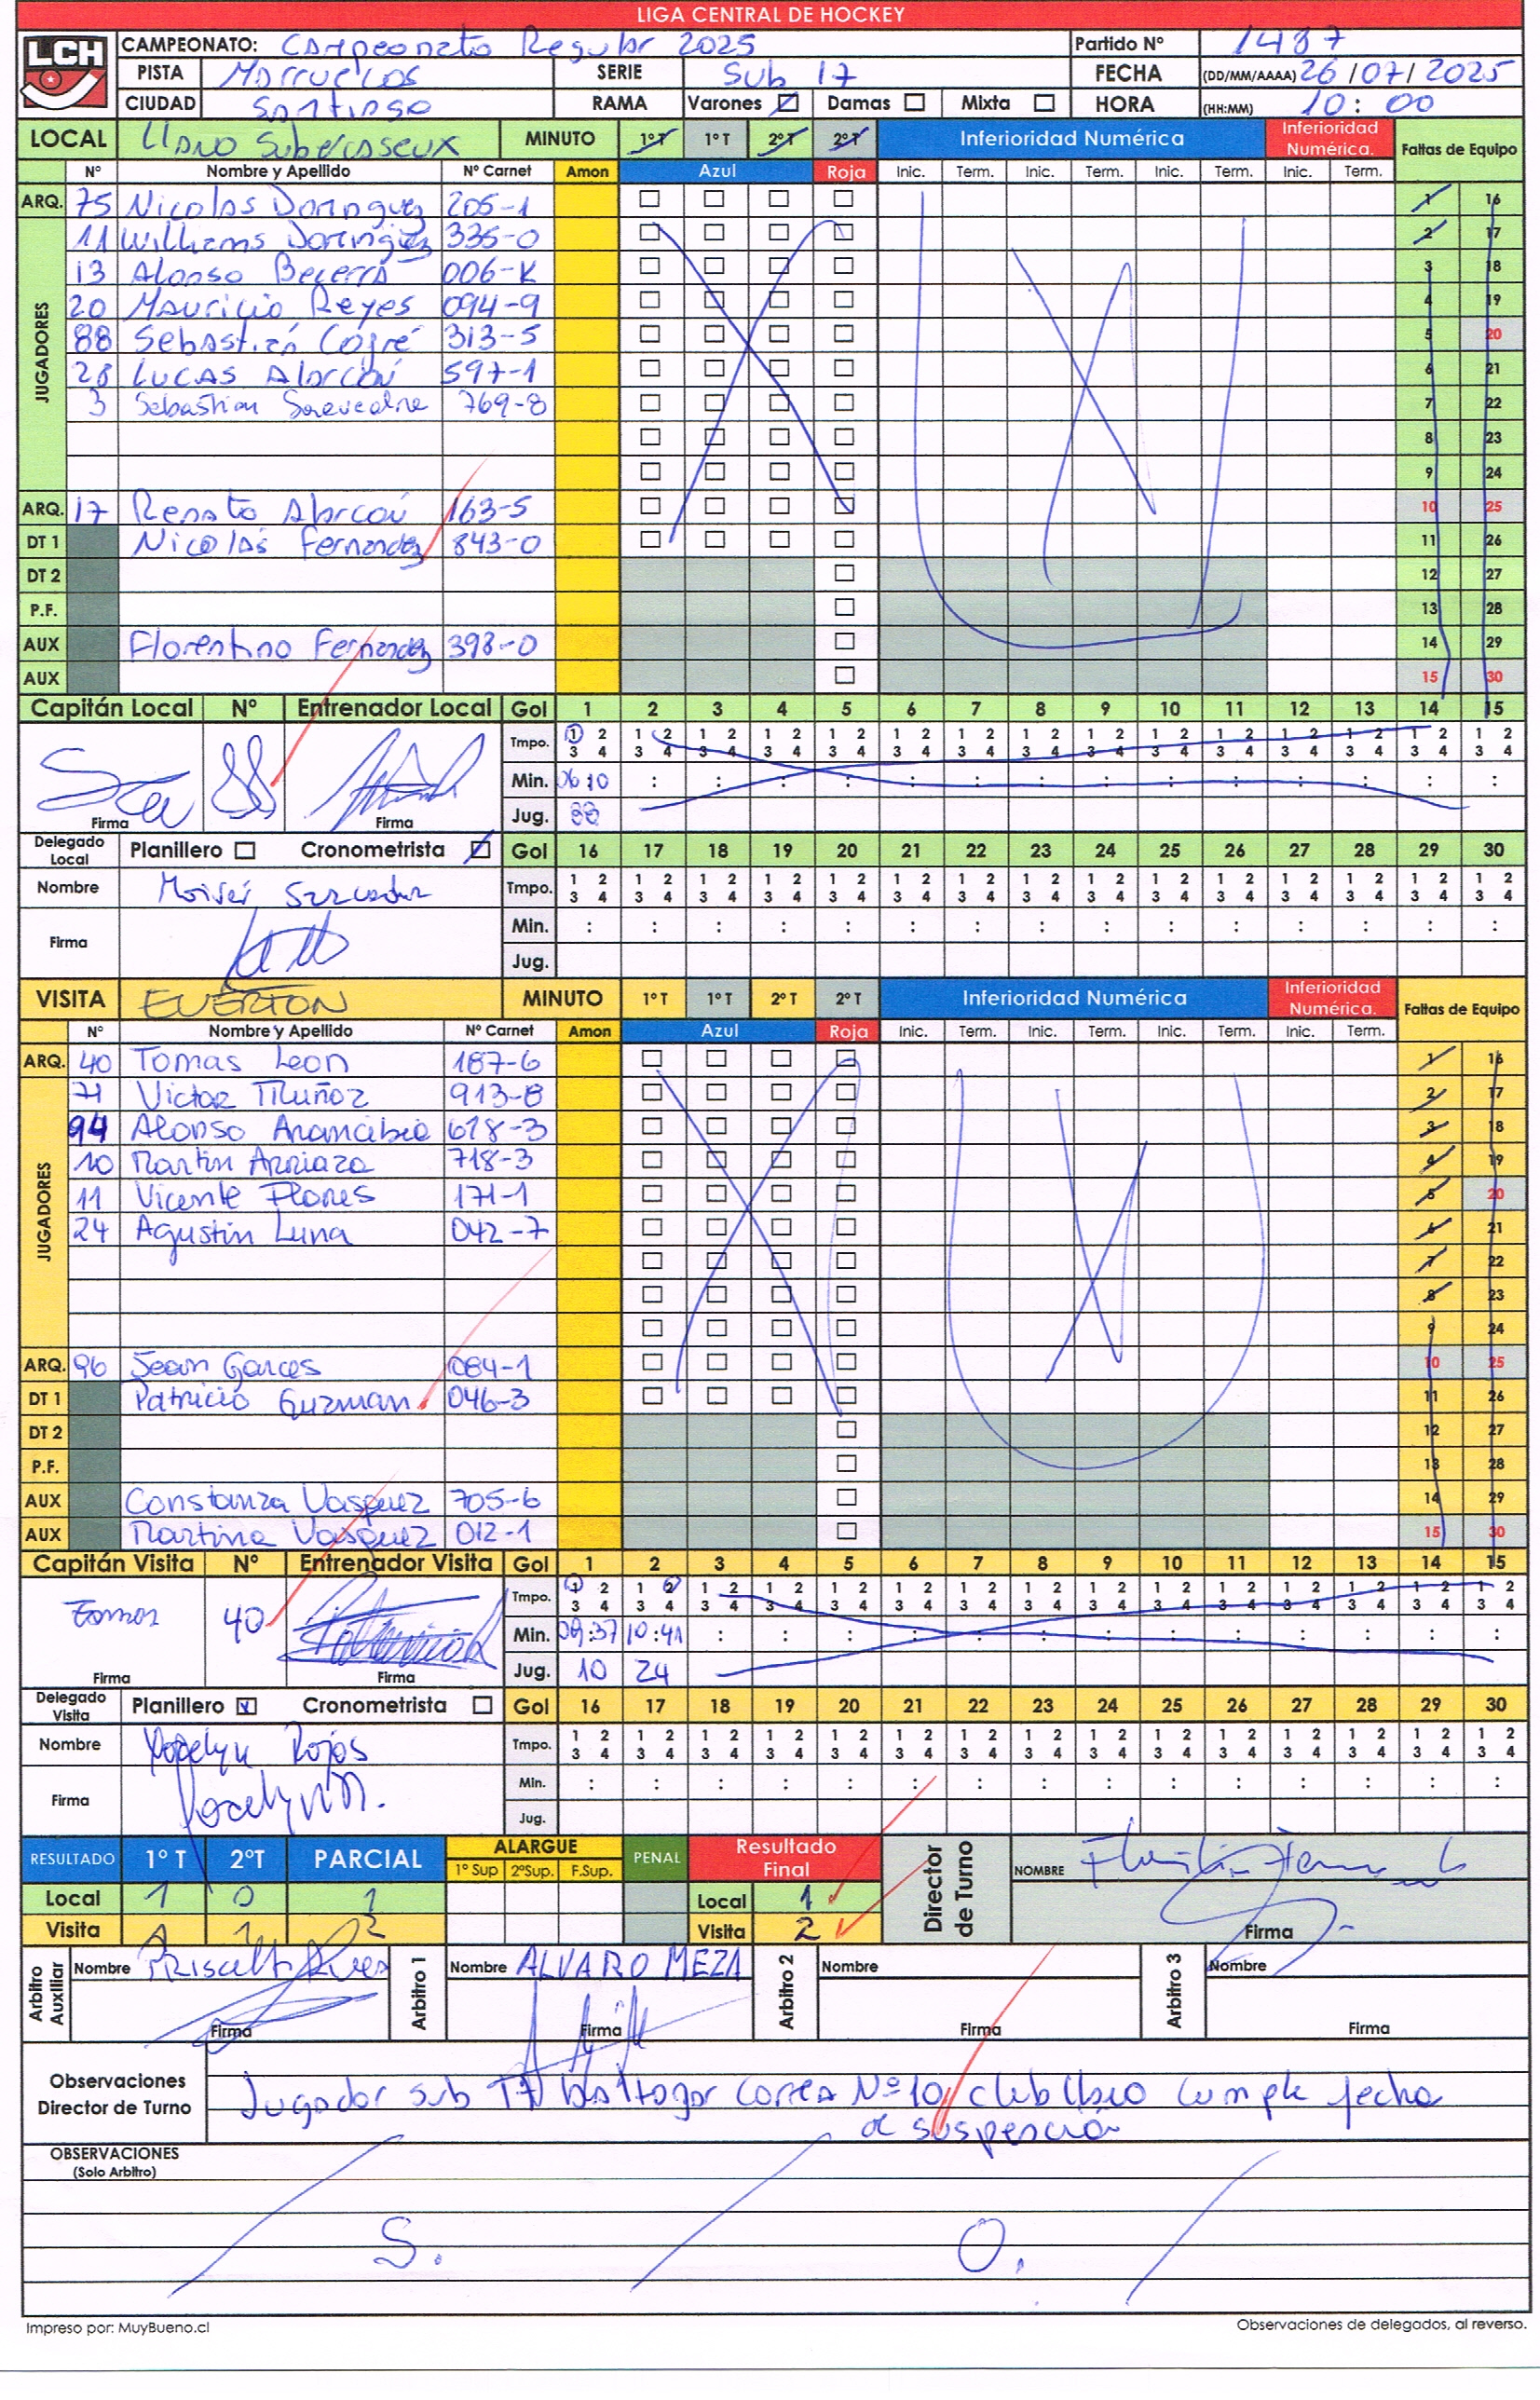 LIGA CENTRAL DE HOCKEY
LCH
CAMPEONATO: Campeonato Regular 2025 Partido Nº 1487
PISTA Marruecos SERIE Sub 17 FECHA (DD/MM/AAAA) 26/07/2025
CIUDAD Santiago RAMA Varones Damas Mixta HORA (HH:MM) 10:00
LOCAL Llano Subercaseux MINUTO 1º T 1º T 2º T 2º T Inferioridad Numérica Inferioridad Numérica. Faltas de Equipo
Nº Nombre y Apellido Nº Carnet Amon Azul Roja Inic. Term. Inic. Term. Inic. Term. Inic. Term.
ARQ. 75 Nicolas Dominguez 205-1 1 16
JUGADORES
11 Williams Dominguez 335-0 2 17
13 Alonso Becerra 006-K 3 18
20 Mauricio Reyes 094-9 4 19
88 Sebastián Cofré 313-5 5 20
28 Lucas Alarcón 597-1 6 21
3 Sebastian 769-8 7 22
8 23
9 24
ARQ. 17 Renato Alarcón 163-5 10 25
DT 1 Nicolás Fernandez 843-0 11 26
DT 2 12 27
P.F. 13 28
AUX Florentino Fernandez 398-0 14 29
AUX 15 30
Capitán Local Nº Entrenador Local Gol 1 2 3 4 5 6 7 8 9 10 11 12 13 14 15
Tmpo. 1 2 3 4 1 2 3 4 1 2 3 4 1 2 3 4 1 2 3 4 1 2 3 4 1 2 3 4 1 2 3 4 1 2 3 4 1 2 3 4 1 2 3 4 1 2 3 4 1 2 3 4 1 2 3 4 1 2 3 4
88 Min. 06:10 : : : : : : : : : : : : : :
Firma Firma Jug. 88
Delegado Local Planillero Cronometrista Gol 16 17 18 19 20 21 22 23 24 25 26 27 28 29 30
Nombre Moisés Tmpo. 1 2 3 4 1 2 3 4 1 2 3 4 1 2 3 4 1 2 3 4 1 2 3 4 1 2 3 4 1 2 3 4 1 2 3 4 1 2 3 4 1 2 3 4 1 2 3 4 1 2 3 4 1 2 3 4 1 2 3 4
Firma Min. : : : : : : : : : : : : : : :
Jug.
VISITA EVERTON MINUTO 1º T 1º T 2º T 2º T Inferioridad Numérica Inferioridad Numérica. Faltas de Equipo
Nº Nombre y Apellido Nº Carnet Amon Azul Roja Inic. Term. Inic. Term. Inic. Term. Inic. Term.
ARQ. 40 Tomas Leon 187-6 1 16
JUGADORES
71 Victor Muñoz 913-8 2 17
94 Alonso Arancibia 678-3 3 18
10 Martin Arriaza 718-3 4 19
11 Vicente Flores 171-1 5 20
24 Agustin Luna 042-7 6 21
7 22
8 23
9 24
ARQ. 96 Jean Garces 084-1 10 25
DT 1 Patricio Guzman 046-3 11 26
DT 2 12 27
P.F. 13 28
AUX Constanza Vasquez 705-6 14 29
AUX Martina Vasquez 012-1 15 30
Capitán Visita Nº Entrenador Visita Gol 1 2 3 4 5 6 7 8 9 10 11 12 13 14 15
Tomas 40 Tmpo. 1 2 3 4 1 2 3 4 1 2 3 4 1 2 3 4 1 2 3 4 1 2 3 4 1 2 3 4 1 2 3 4 1 2 3 4 1 2 3 4 1 2 3 4 1 2 3 4 1 2 3 4 1 2 3 4 1 2 3 4
Min. 09:37 10:41 : : : : : : : : : : : : :
Firma Firma Jug. 10 24
Delegado Visita Planillero Cronometrista Gol 16 17 18 19 20 21 22 23 24 25 26 27 28 29 30
Nombre Yocelyn Rojas Tmpo. 1 2 3 4 1 2 3 4 1 2 3 4 1 2 3 4 1 2 3 4 1 2 3 4 1 2 3 4 1 2 3 4 1 2 3 4 1 2 3 4 1 2 3 4 1 2 3 4 1 2 3 4 1 2 3 4 1 2 3 4
Firma Yocelyn R. Min. : : : : : : : : : : : : : : :
Jug.
RESULTADO 1º T 2ºT PARCIAL ALARGUE 1º Sup 2ºSup. F.Sup. PENAL Resultado Final Director de Turno NOMBRE
Local 1 0 1 Local 1
Visita 1 1 2 Visita 2 Firma
Arbitro Auxiliar Nombre Arbitro 1 Nombre ALVARO MEZA Arbitro 2 Nombre Arbitro 3 Nombre
Firma Firma Firma Firma
Observaciones Director de Turno Jugador sub 17 Baltazar Correa Nº 10, club Llano cumple fecha
de suspención
OBSERVACIONES
(Solo Arbitro)
S. O.
Impreso por: MuyBueno.cl Observaciones de delegados, al reverso.